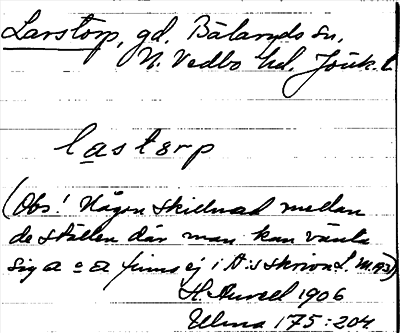 Larstorp, gd. Bälaryds sn,
N. Vedbo hd. Jönk. l.
lastərp
(Obs! Någon skillnad mellan
de ställen där man kan vänta
sig a o a finns ej i A:s skrivn.
H. Aurell 1906
Ulma 175:204